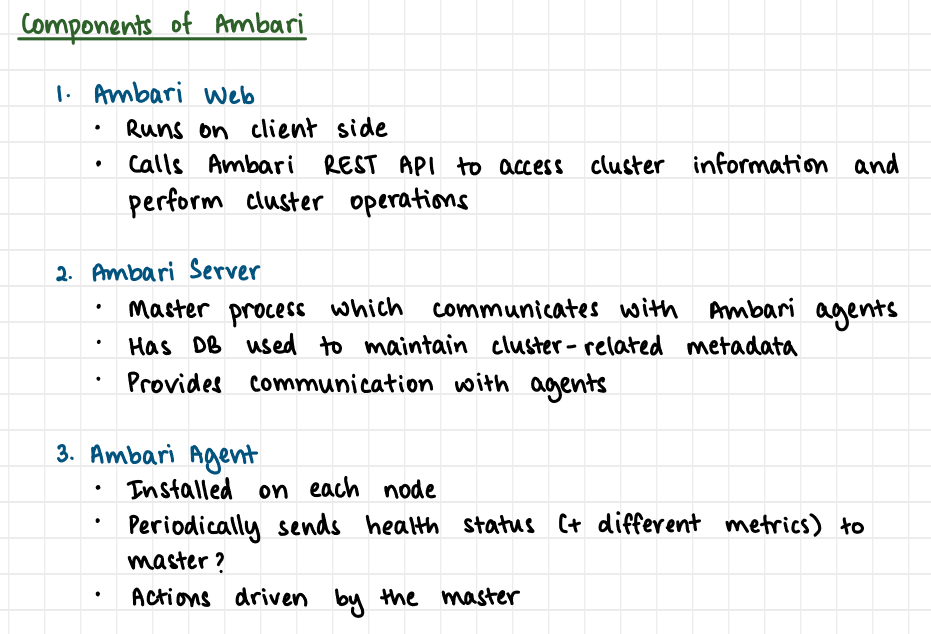 Components of Ambari
1. Ambari Web
• Runs on client side
• Calls Ambari REST API to access cluster information and
perform cluster operations
2. Ambari Server
• Master process which communicates with Ambari agents
• Has DB used to maintain cluster-related metadata
• Provides communication with agents
3. Ambari Agent
• Installed on each node
• Periodically sends health status (+ different metrics) to
master?
• Actions driven by the master